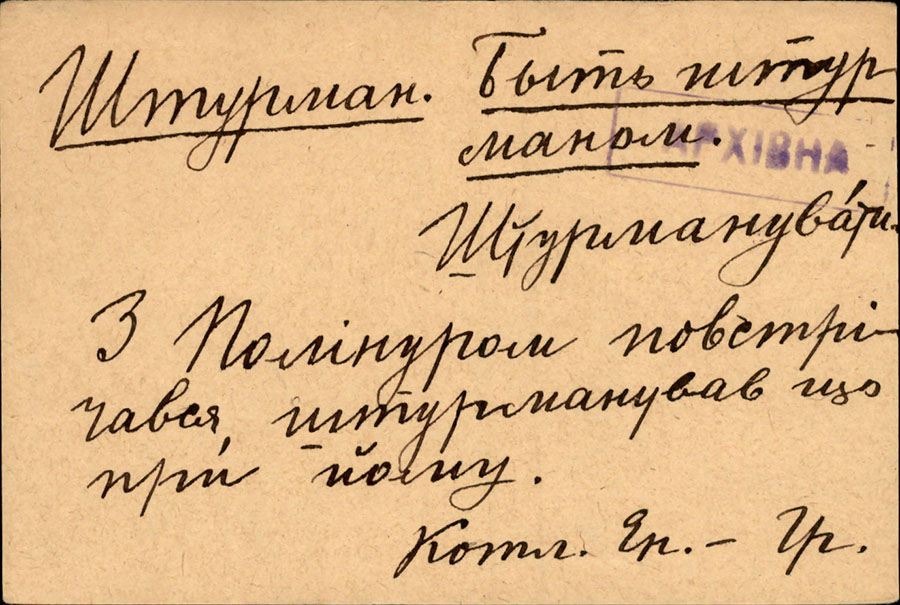 Штурман. Быть штур
маном.
АРХІВНА
Штурманува́ти.
З Полінуром повстрі-
чався, штурманував що
при йому.
Котл. Ен. – Гр.